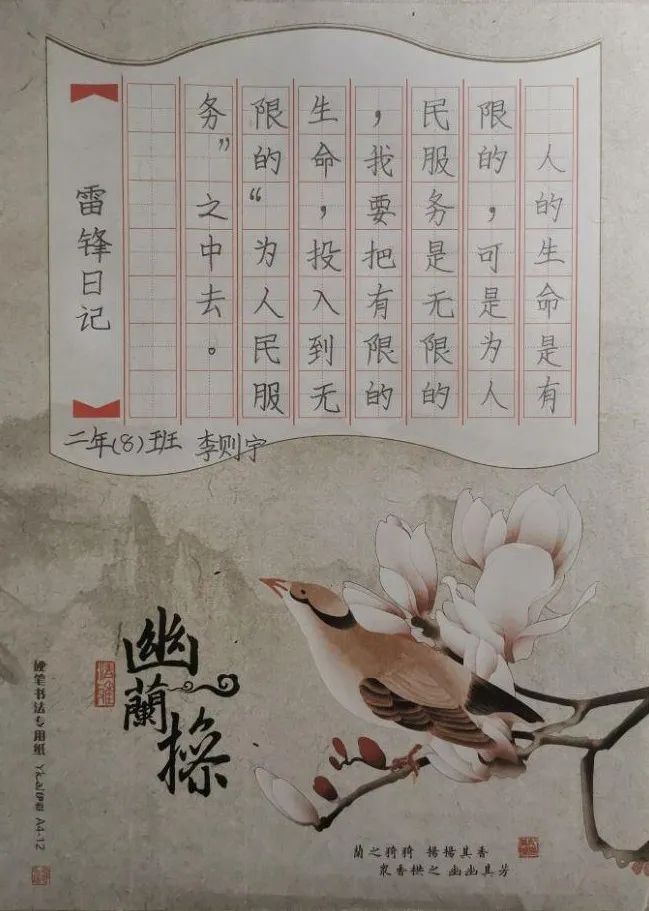 人的生命是有
限的，可是为人
民服务是无限的
，我要把有限的
生命，投入到无
限的“为人民服
务”之中去。
雷锋日记
二年(8)班 李则宇
幽蘭操
硬笔书法专用纸 A4-12
蘭之猗猗 揚揚其香
衆香拱之 幽幽其芳